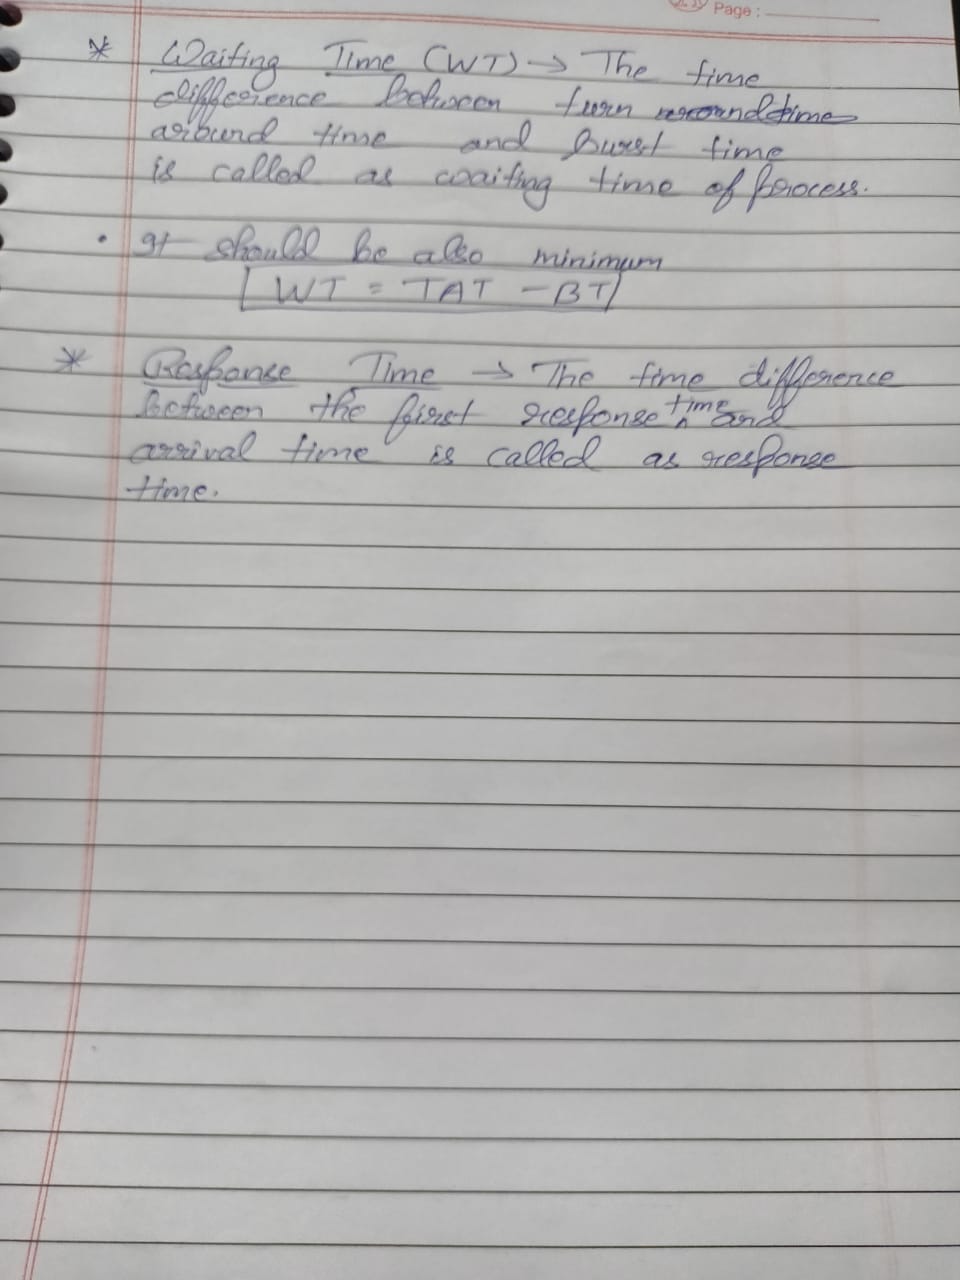 Page:
* Waiting Time (WT) → The time
difference between turn
around time and burst time
is called as waiting time of process.
• It should be also minimum
WT = TAT - BT
* Response Time → The time difference
between the first response time and
arrival time is called as response
time.